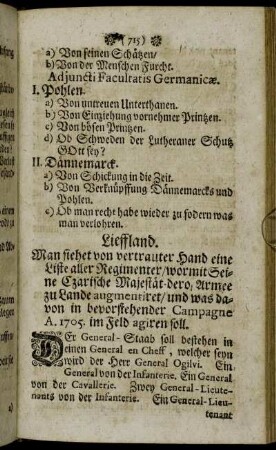 (715)
a) Von seinen Schätzen/
b) Von der Menschen Furcht.
Adjuncti Facultatis Germanicæ.
I. Pohlen.
a) Von untreuen Unterthanen.
b) Von Einziehung vornehmer Printzen.
c) Von bösen Printzen.
d) Ob Schweden der Lutheraner Schutz
GOtt sey?
II. Dännemarck.
a) Von Schickung in die Zeit.
b) Von Verknüpffung Dännemarcks und
Pohlen.
c) Ob man recht habe wieder zu fodern was
man verlohren.
Lieffland.
Man siehet von vertrauter Hand eine
Liste aller Regimenter/ wormit Sei-
ne Czarische Majestät dero, Armee
zu Lande augmentiret/ und was da-
von in bevorstehender Campagne
A. 1705. im Feld agiren soll.
DEr General-Staab soll bestehen in
einen General en Cheff, welcher seyn
wird der Herr General Ogilvi. Ein
General von der Infanterie. Ein General
von der Cavallerie. Zwey General-Lieute-
nants von der Infanterie. Ein General-Lieu-
tenant